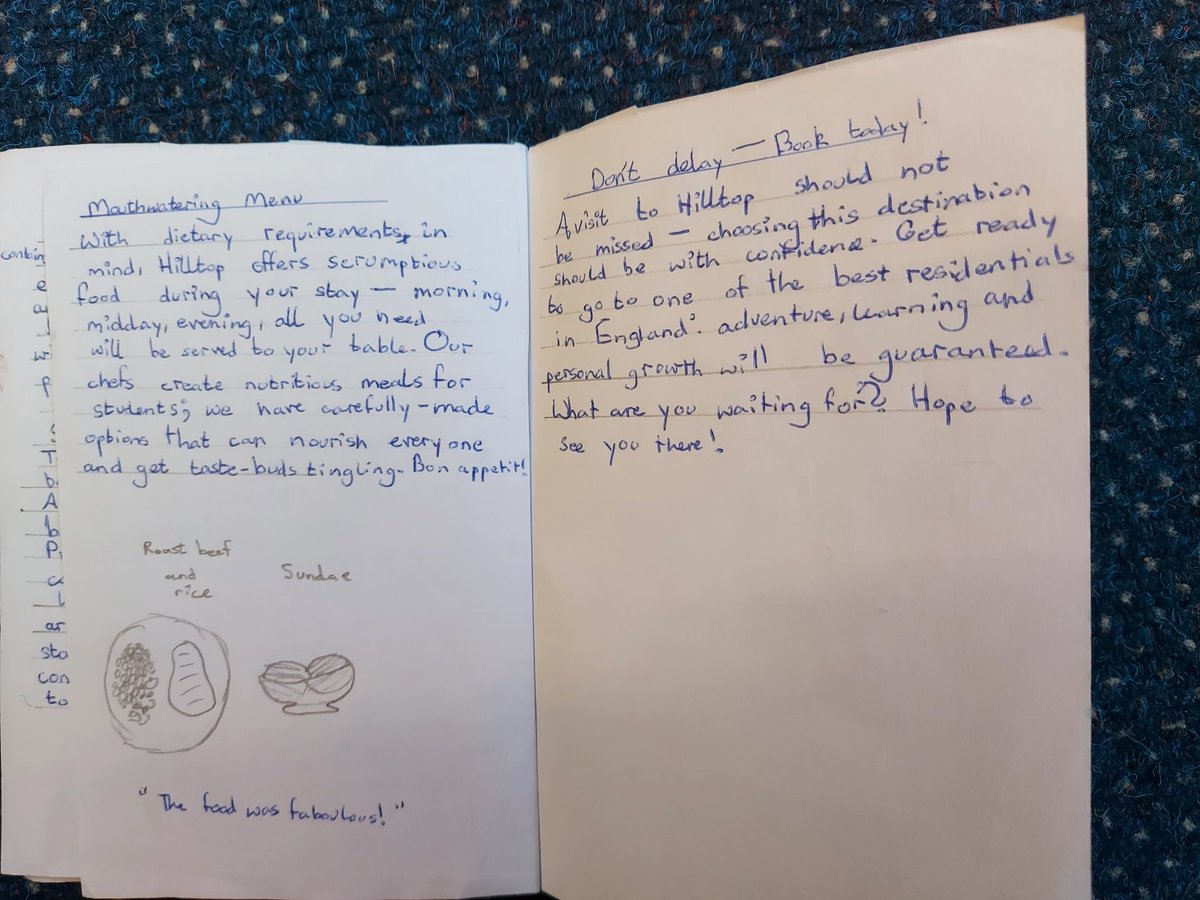 Mouthwatering Menu
With dietary requirements, in
mind, Hilltop offers scrumptious
food during your stay — morning,
midday, evening, all you need
will be served to your table. Our
chefs create nutritious meals for
students; we have carefully-made
options that can nourish everyone
and get taste-buds tingling. Bon appetit!
Roast beef
and
rice
Sundae
"The food was faboulous!"
contin
e
a
w
p
T
b
A
b
P
c
L
ar
sto
con
to
Don't delay — Book today!
A visit to Hilltop should not
be missed — choosing this destination
should be with confidence. Get ready
to go to one of the best residentials
in England: adventure, learning and
personal growth will be guaranteed.
What are you waiting for? Hope to
see you there!